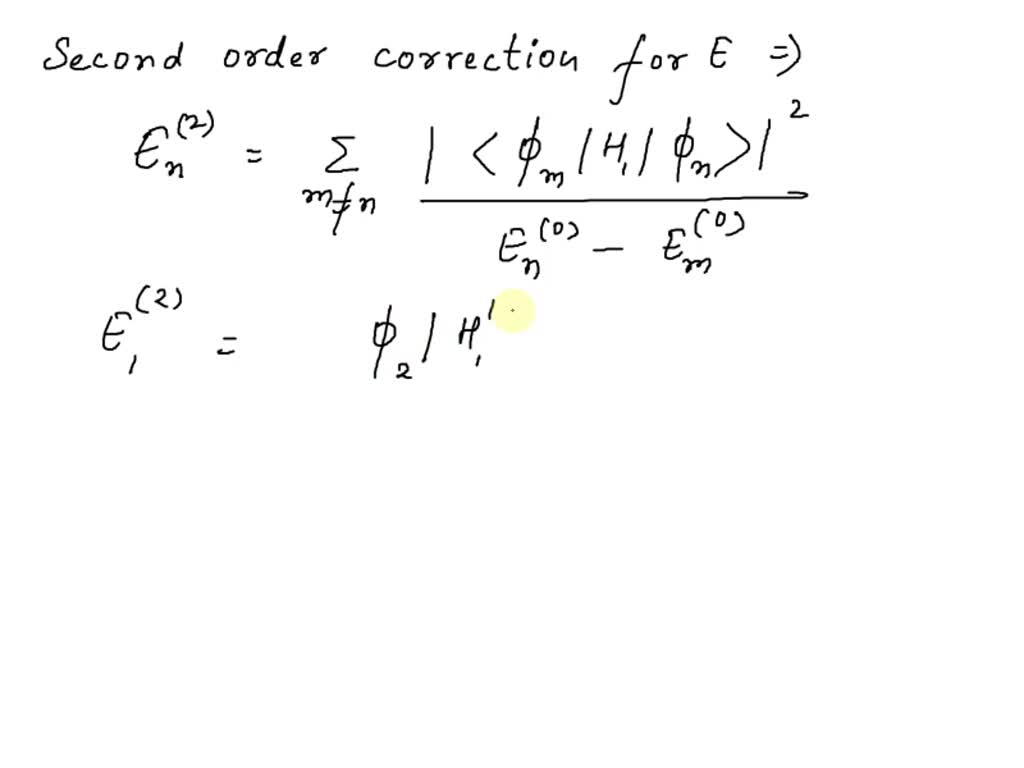 Second order correction for E ⇒
E_n^(2) = Σ_{m≠n} |<ϕ_m|H_1|ϕ_n>|^2 / E_n^(0) − E_m^(0)
E_1^(2) = ϕ_2|H_1'